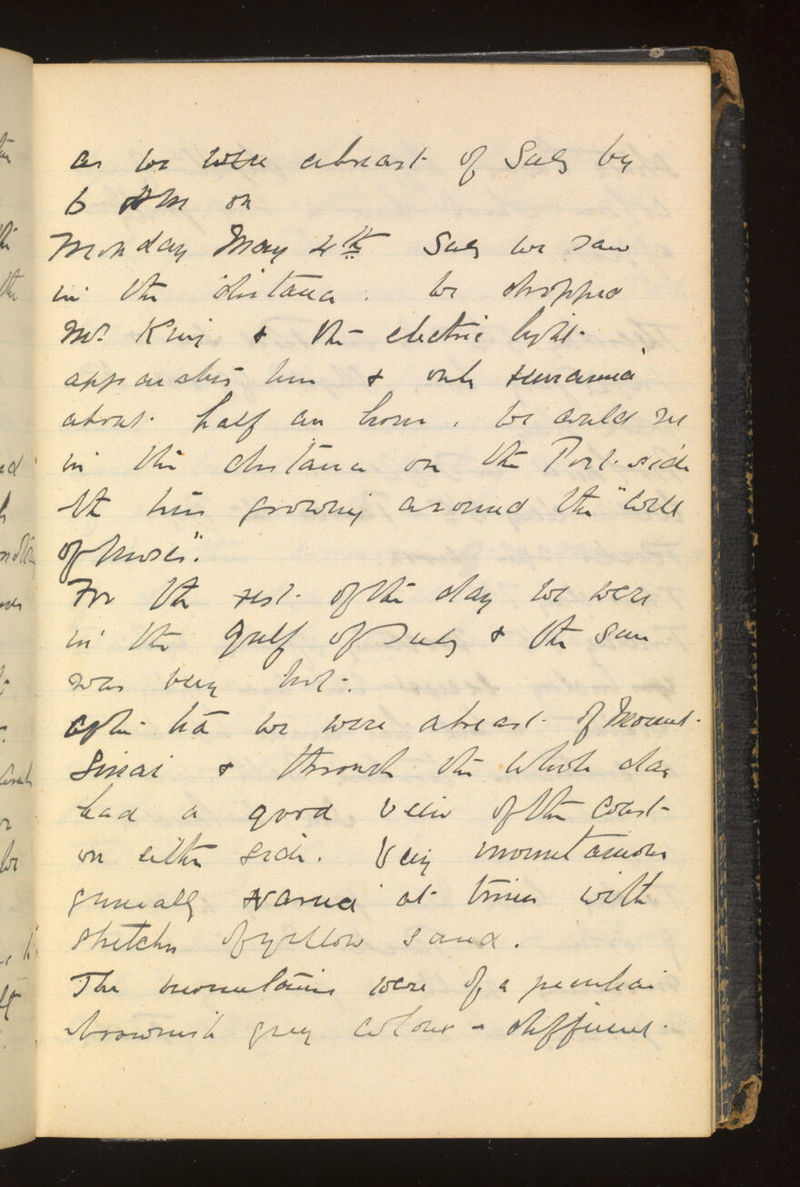 as we were abreast of Suez by
6 AM on
Monday May 4th Suez we saw
in the distance. We dropped
Mr. King & the electric light
apparatus here & only remained
about half an hour. We could see
in the distance on the Port side
the trees growing around the "Well
of Moses".
For the rest of the day we were
in the Gulf of Suez & the sun
was very hot.
After tea we were abreast of Mount
Sinai & through the whole day
had a good view of the coast
on either side. Very mountainous
generally varied at times with
stretches of yellow sand.
The mountains were of a peculiar
brownish grey colour - different